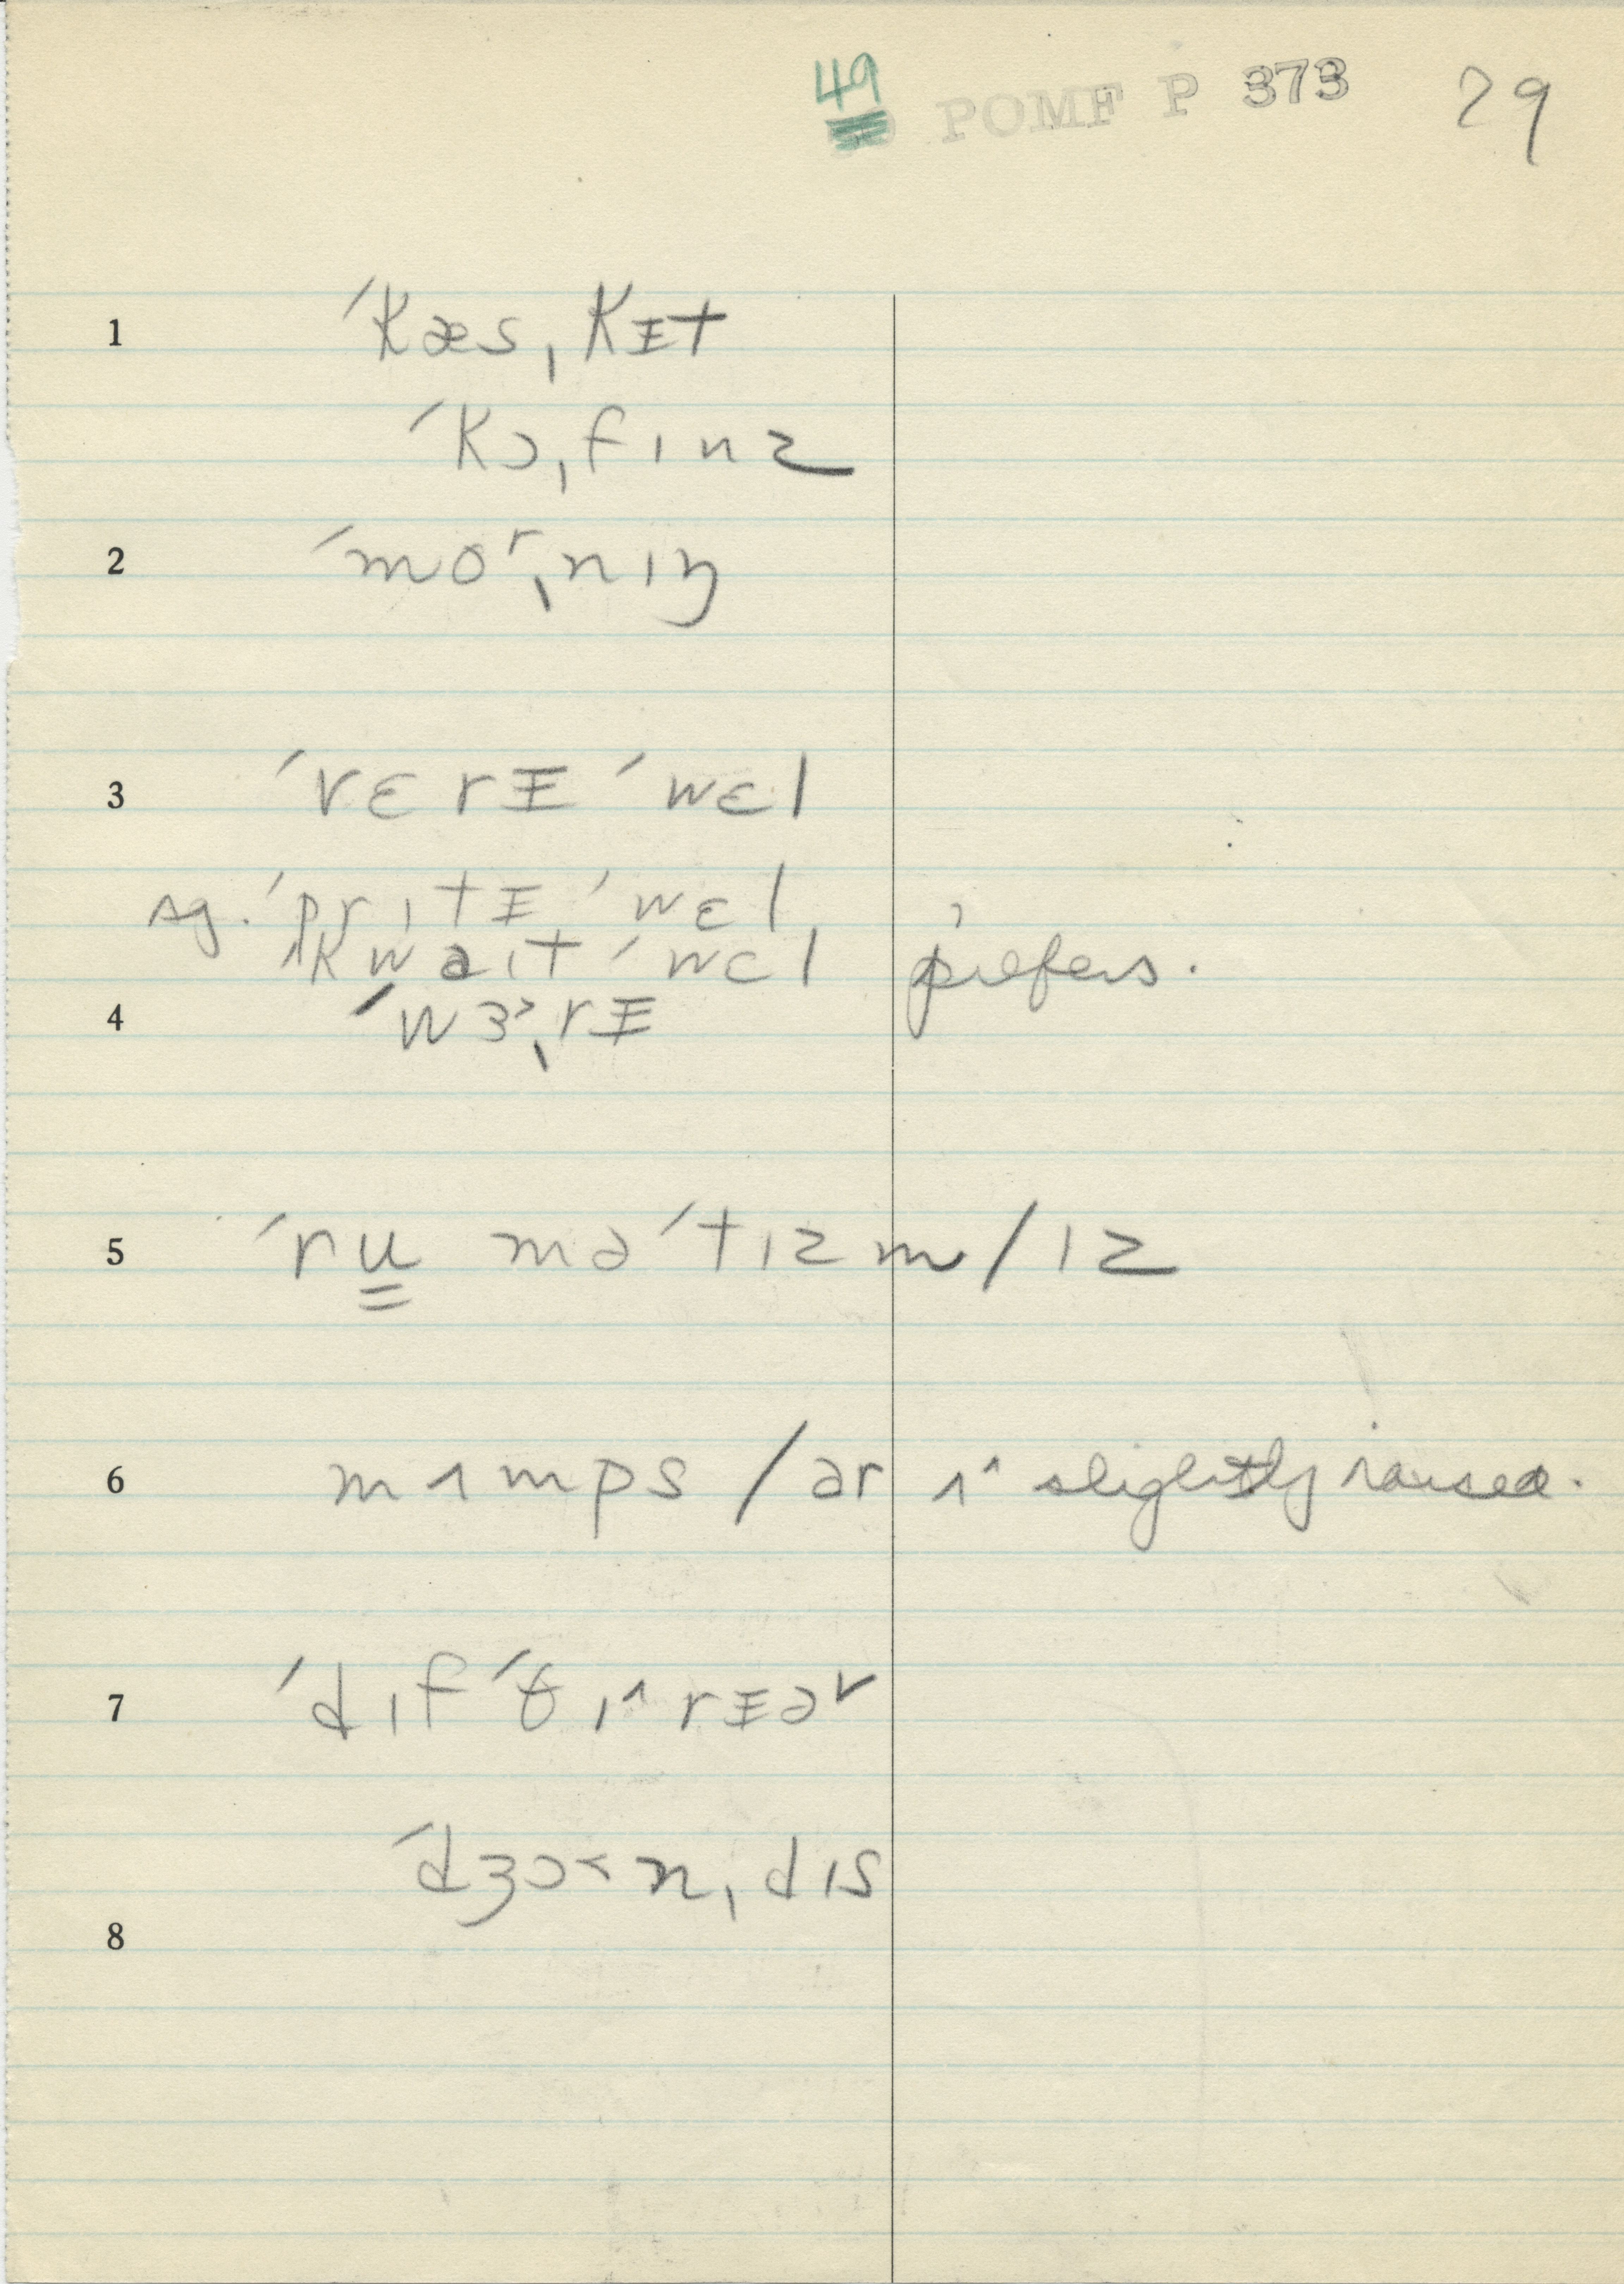 49 POMF P 373 29
1 ˈkæsˌkᵻt
ˈkɔˌfɪnz
2 ˈmoʳˌnɪŋ
3 ˈvɛrᵻ ˈwɛl
sg. ˈprɪtᵻ ˈwɛl,
ˈkwaɪt ˈwɛl prefers.
4 ˈwɜ˞ˌrᵻ
5 ˈru̳məˈtɪzm/ɪz
6 mʌmps/ər ʌ^ slightly raised.
7 ˈdɪfˈθɪ^rᵻər
ˈdʒɔ˂nˌdɪs
8